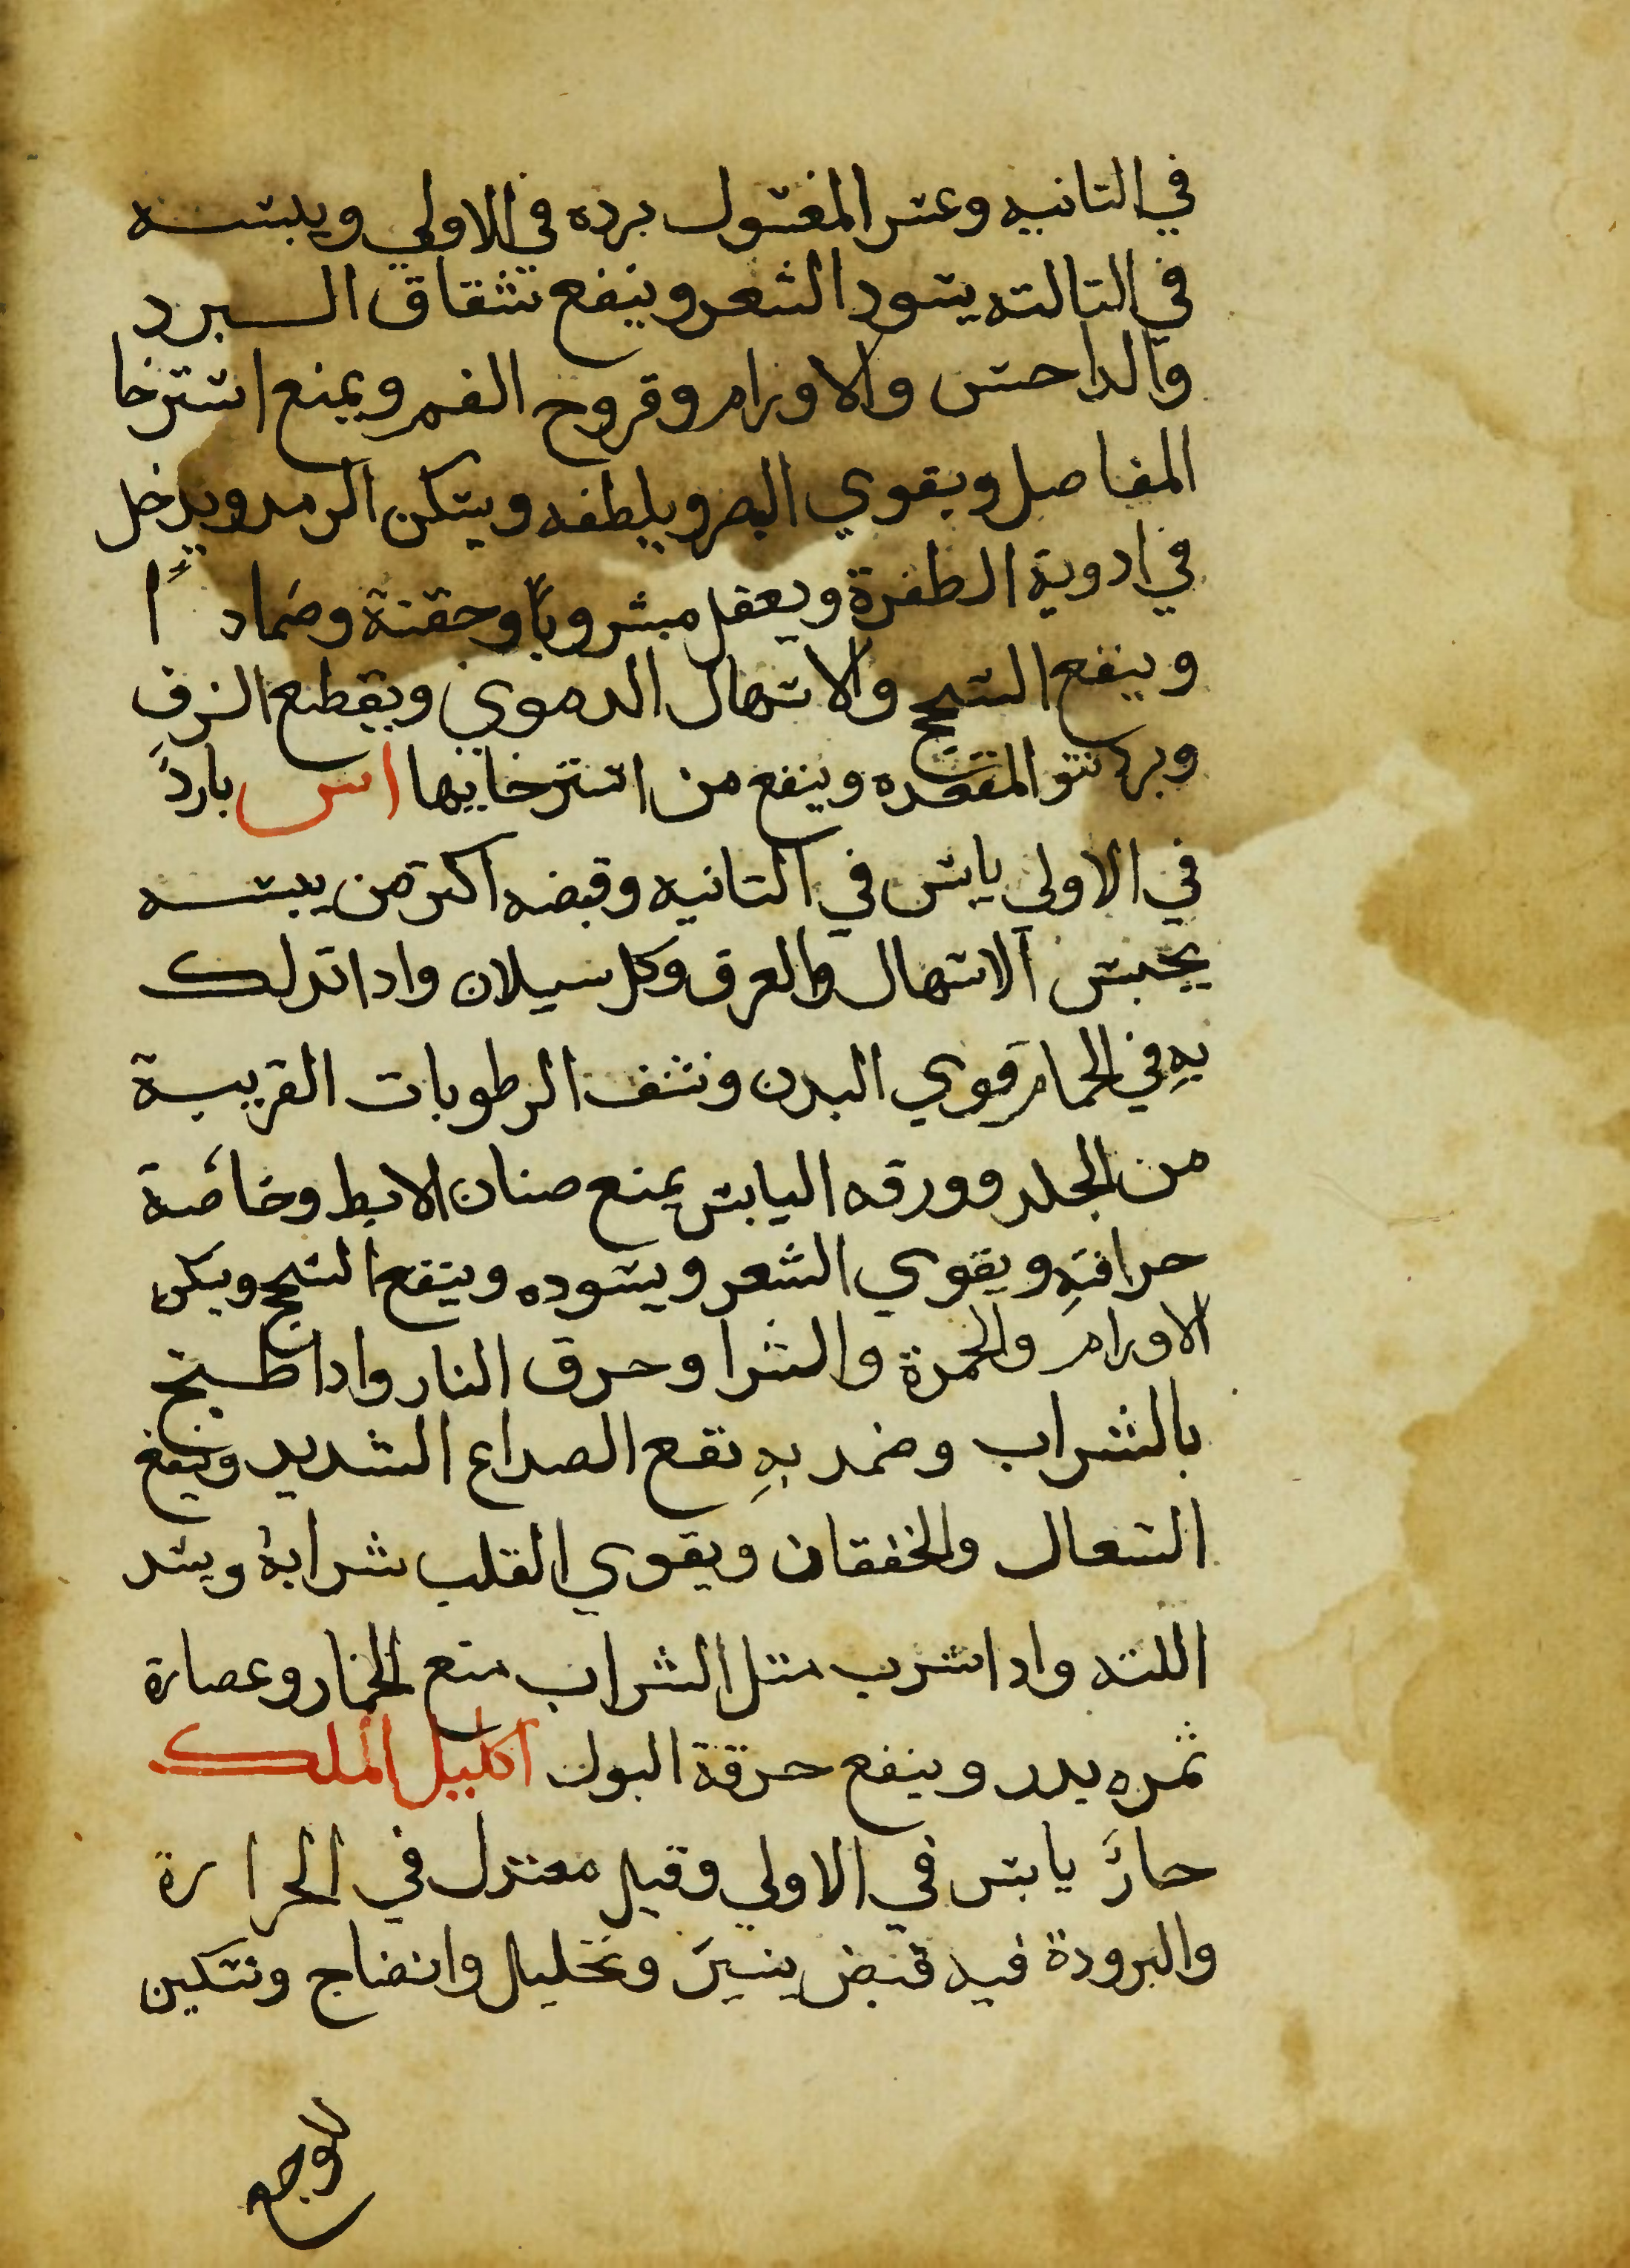 في التانيه وعتر المغتول برده في الاولي ويبته
في التالته يتود الشعر وينفع شقاق البرد
والداحس والاورام وقروح الفم ويمنع استرخا
المفاصل ويقوي البصر ويلطفه ويتكن الرمد ويدخل
في ادوية الطفرة ويعقل مشروبًا وحقنة وضمادًا
وينفع السحج والاتهال الدموي ويقطع النزف
وبرد نتو المقعده وينفع من استرخايها اس بارد
في الاولي يابس في التانيه وقبضه اكتر من يبسه
يحبس الاتهال والعرق وكل سيلان وادا تدلك
به في الحمام قوي البدن ونشف الرطوبات القريبة
من الجلد وورقه اليابس يمنع صنان الابط وخاصة
حراقته ويقوي الشعر ويسوده وينفع السحج ويسكن
الاورام والحمرة والشرا وحرق النار وادا طبخ
بالشراب وضمد به نفع الصداع الشديد وينفع
السعال والخفقان ويقوي القلب شرابه ويشد
اللته وادا شرب متل الشراب منع الخمار وعصارة
ثمره يدر وينفع حرقة البول اكليل الملك
حارَ يابس في الاولي وقيل معتدل في الحرارة
والبرودة فيه قبض يسير وتحليل وانضاج وتسكين
للوجع